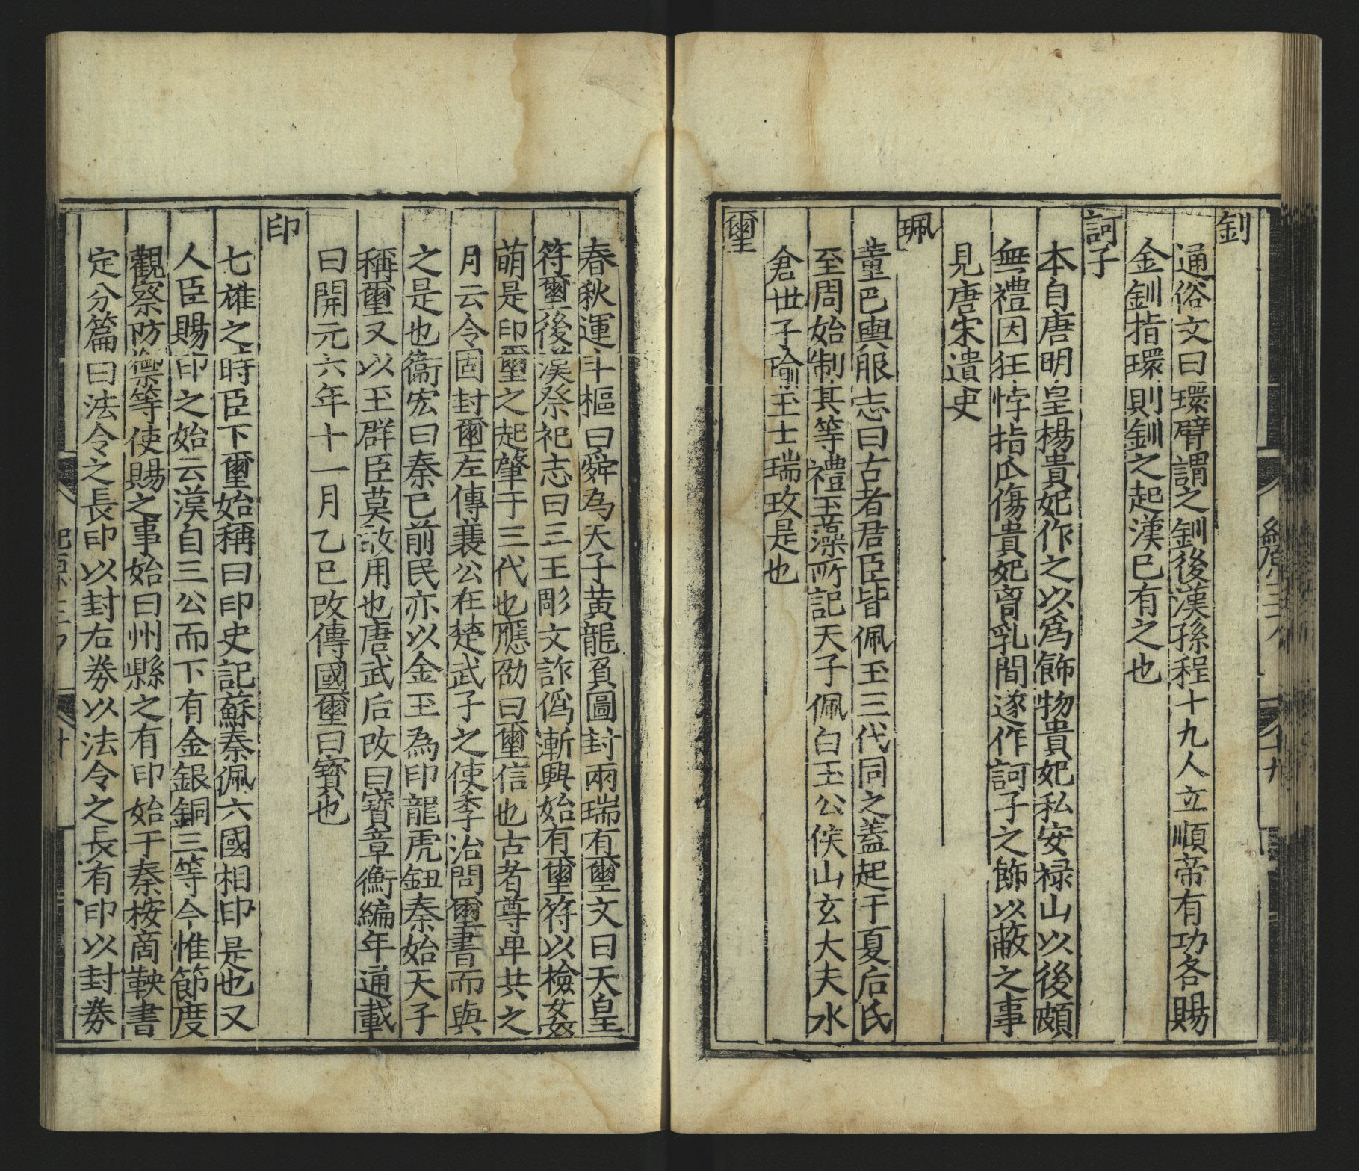 釧
通俗文曰環臂謂之釧後漢孫程十九人立順帝有功各賜
金釧指環則釧之起漢已有之也
訶子
本自唐明皇楊貴妃作之以為飾物貴妃私安祿山以後頗
無禮因狂悖指爪傷貴妃胷乳間遂作訶子之飾以蔽之事
見唐宋遺史
珮
董巴輿服志曰古者君臣皆佩玉三代同之蓋起于夏后氏
至周始制其等禮玉藻所記天子佩白玉公侯山玄大夫水
倉世子瑜玉士瑞玫是也
璽
春秋運斗樞曰舜為天子黃龍負圖封兩瑞有璽文曰天皇
符璽後漢祭祀志曰三王彫文詐偽漸興始有璽符以檢姦
萌是印璽之起肇于三代也應劭曰璽信也古者尊卑共之
月云令固封璽左傳襄公在楚武子之使季冶問璽書而與
之是也衞宏曰秦已前民亦以金玉為印龍虎鈕秦始天子
稱璽又以玉群臣莫敢用也唐武后改曰寶章衡編年通載
曰開元六年十一月乙巳改傳國璽曰寶也
印
七雄之時臣下璽始稱曰印史記蘇秦佩六國相印是也又
人臣賜印之始云漢自三公而下有金銀銅三等今惟節度
觀察防禦等使賜之事始曰州縣之有印始于秦桉商鞅書
定分篇曰法令之長印以封右劵以法令之長有印以封劵